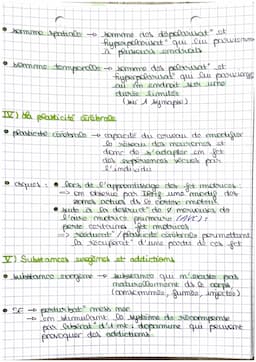 • somme spatiale → somme des dépolarisat° et
hyperpolarisat° qui lui parviennent
à plusieurs endroits
• somme temporelle → somme des polarisat° et
hyperpolarisat° qui lui parviennent
en un endroit sur une
durée limitée
(sur 1 synapse)
IV) La plasticité cérébrale
• plasticité cérébrale → capacité du cerveau de modifier
le réseau des neurones et
donc de s'adapter en fct
des expériences vécues par
l'individu
• lors de l'apprentissage des fct motrices :
→ on observe par IRMf une modif des
zones actives ds le cortex moteur
• suite à la destruct° de neurones de
l'aire motrice primaire (AVC) :
perte certaines fct motrices
→ plasticité cérébrale permettant
la récupérat° d'une partie de ces fct
V) Substances exogènes et addictions
• substance exogène → substance qui n'existe pas
naturellement ds le corps
(consommée, fumée, injectée)
• SE → perturbat° mess nerv
→ en stimulant le système de récompense
par libérat° d' dopamine qui peuvent
provoquer des addictions